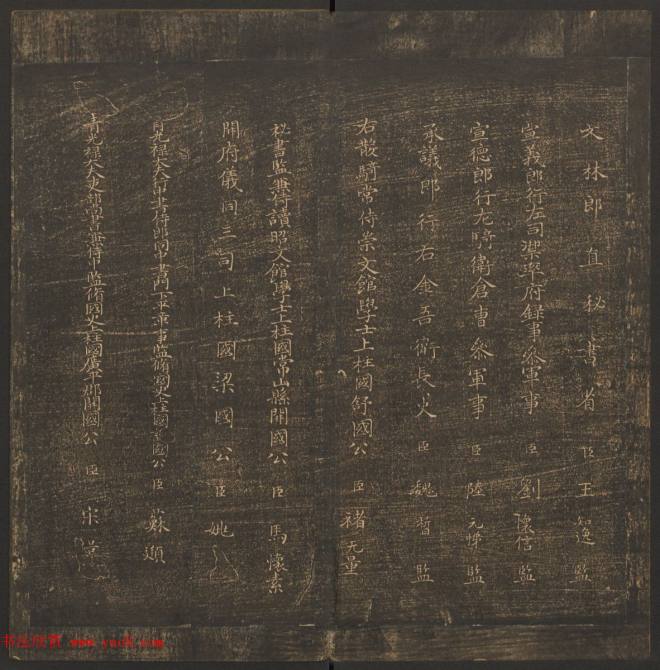 文林郎直秘書省臣王知逸監
宣義郎行左司禦率府錄事叅軍事臣劉懷信監
宣德郎行左驍衛倉曹叅軍事臣陸元悌監
承議郎行右金吾衛長史臣魏哲監
右散騎常侍崇文館學士上柱國舒國公臣褚无量
祕書監兼侍讀昭文館學士上柱國常山縣開國公臣馬懷素
開府儀同三司上柱國梁國公臣姚
光祿大夫侍郎同中書門下平章事監脩國史上柱國國公臣蘇頲
光祿大夫吏部尚書兼侍中監脩國史上柱國廣平郡開國公臣宋璟
书法欣赏 www.yac8.com